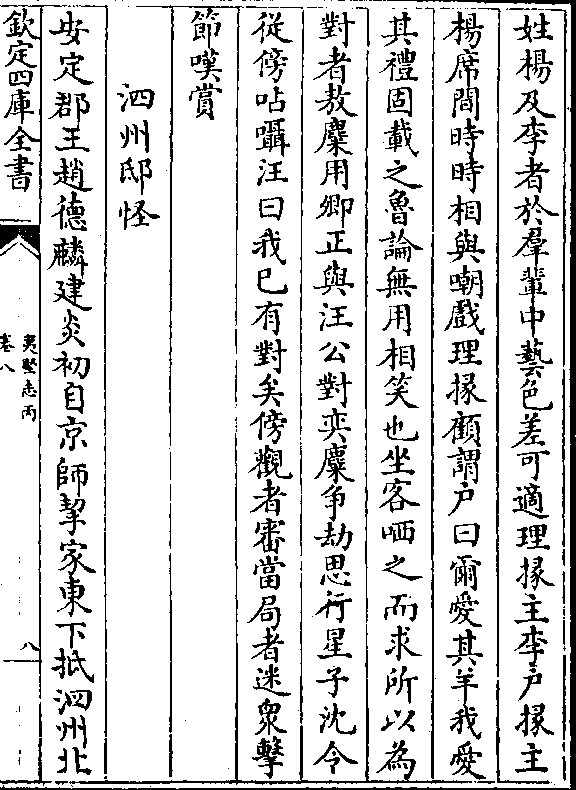 姓楊及李者於羣輩中藝色差可適理掾主李戸掾主
楊席間時時相與嘲戲理掾顧謂户曰爾愛其羊我愛
其禮固載之魯論無用相笑也坐客哂之而求所以為
對者敖麋用鄉正與汪公對奕麋争劫思行星子沈令
從傍呫囁汪曰我已有對矣傍觀者審當局者迷衆擊
節嘆賞
泗州邸怪
安定郡王趙德麟建炎初自京師挈家東下抵泗州北
欽定四庫全書
夷堅志丙
卷八
八